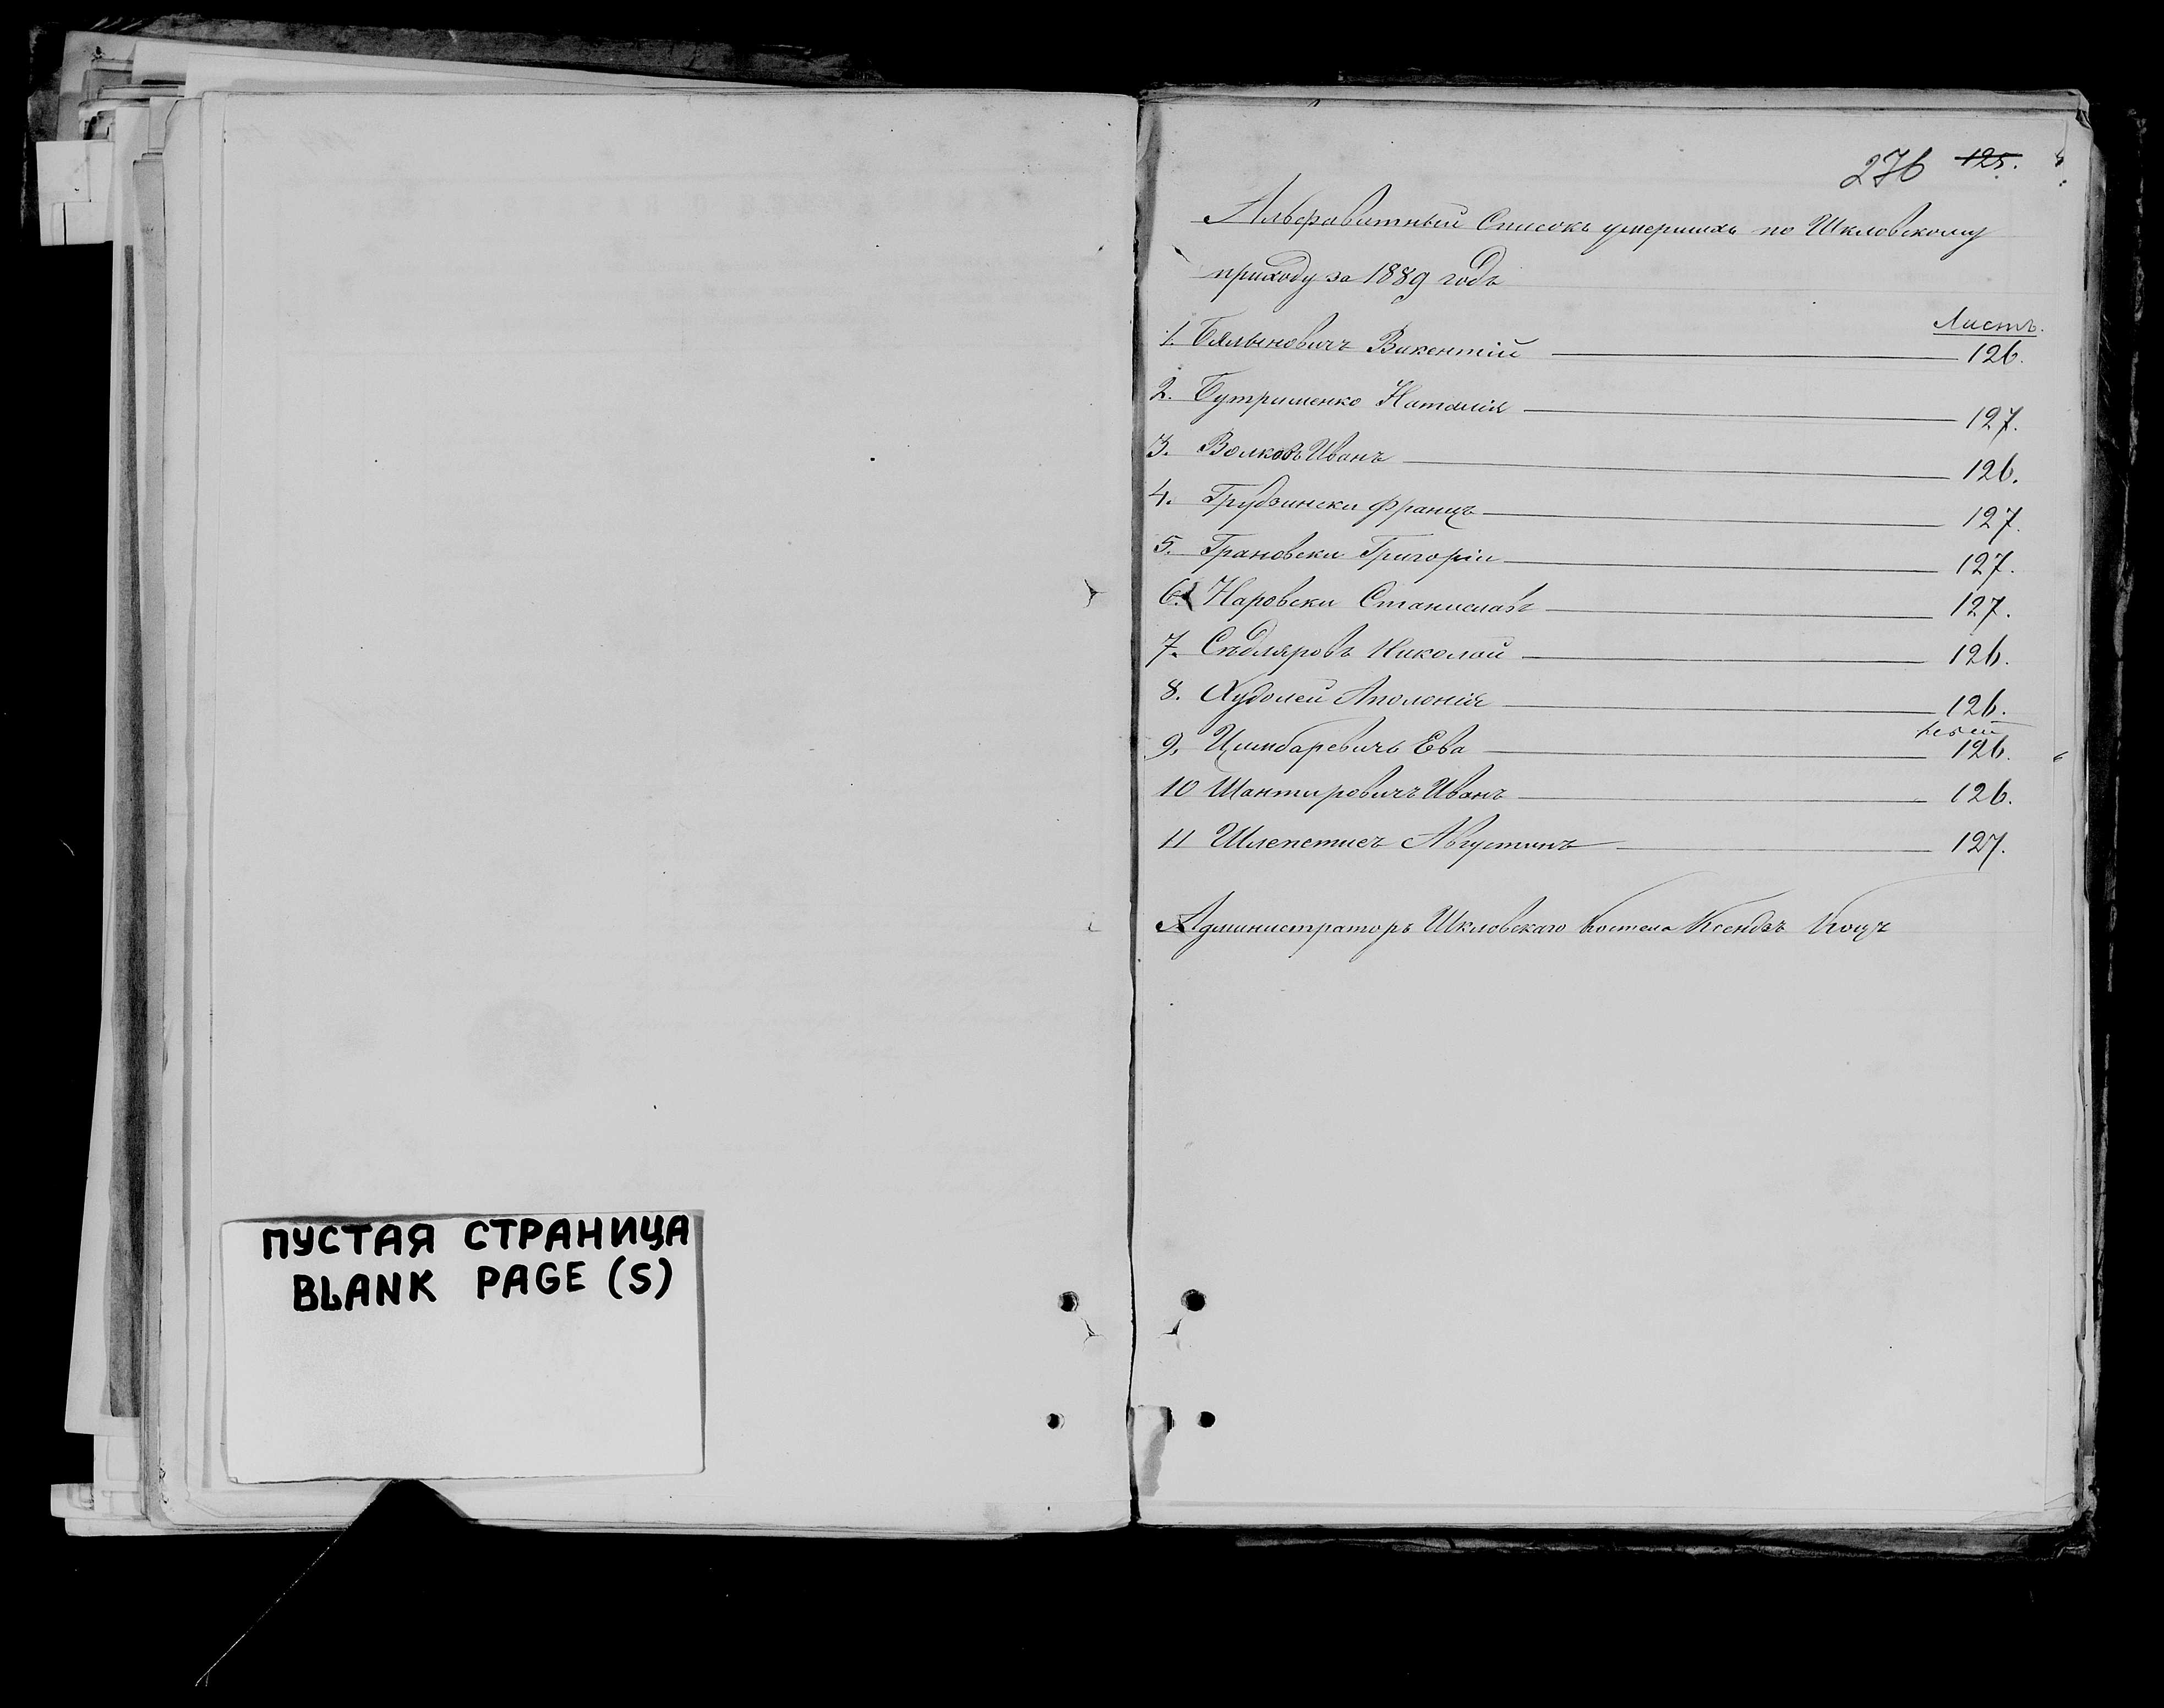 ПУСТАЯ СТРАНИЦА
BLANK PAGE (S)
276 125.
Альфавитный Списокъ умершихъ по Шкловскому
приходу за 1889 годъ
Листъ.
1. Бялыновичъ Викентій 126.
2. Бутрименко Наталія 127.
3. Волковъ Иванъ 126.
4. Грудзински Францъ 127.
5. Грановски Григорій 127.
6. Наровски Станиславъ 127.
7. Сѣдляровъ Николай 126.
8. Худолей Аполонія 126.
9. Цимбаревичъ Ева 126.
10 Шантыревичъ Иванъ 126.
11 Шлепетисъ Августинъ 127.
Администраторъ Шкловскаго Костела Ксендзъ